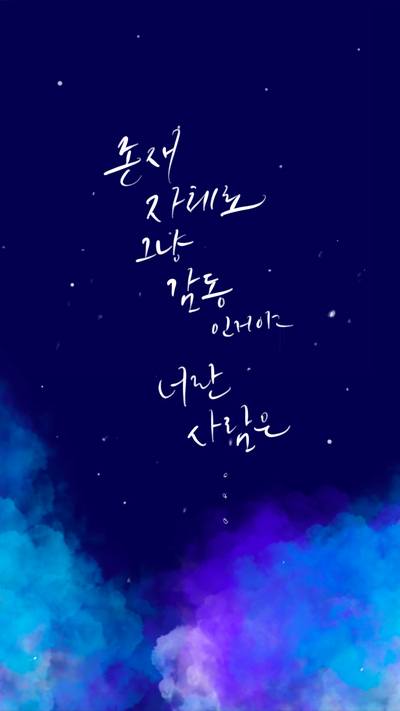 존재
자체로
그냥
감동
인거야
너란
사람은
。。。